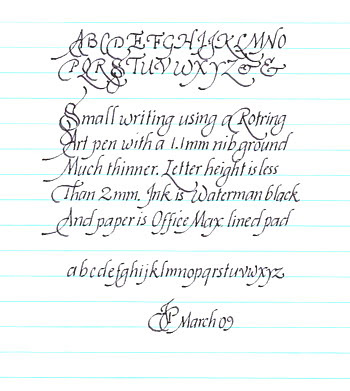 ABCDEFGHIJKLMNO
PQRSTUVWXYZ & &
Small writing using a Rotring
Art pen with a 1.1mm nib ground
Much thinner. Letter height is less
Than 2mm. Ink is Waterman black
And paper is Office Max lined pad
abcdefghijklmnopqrstuvwxyz
JP March 09